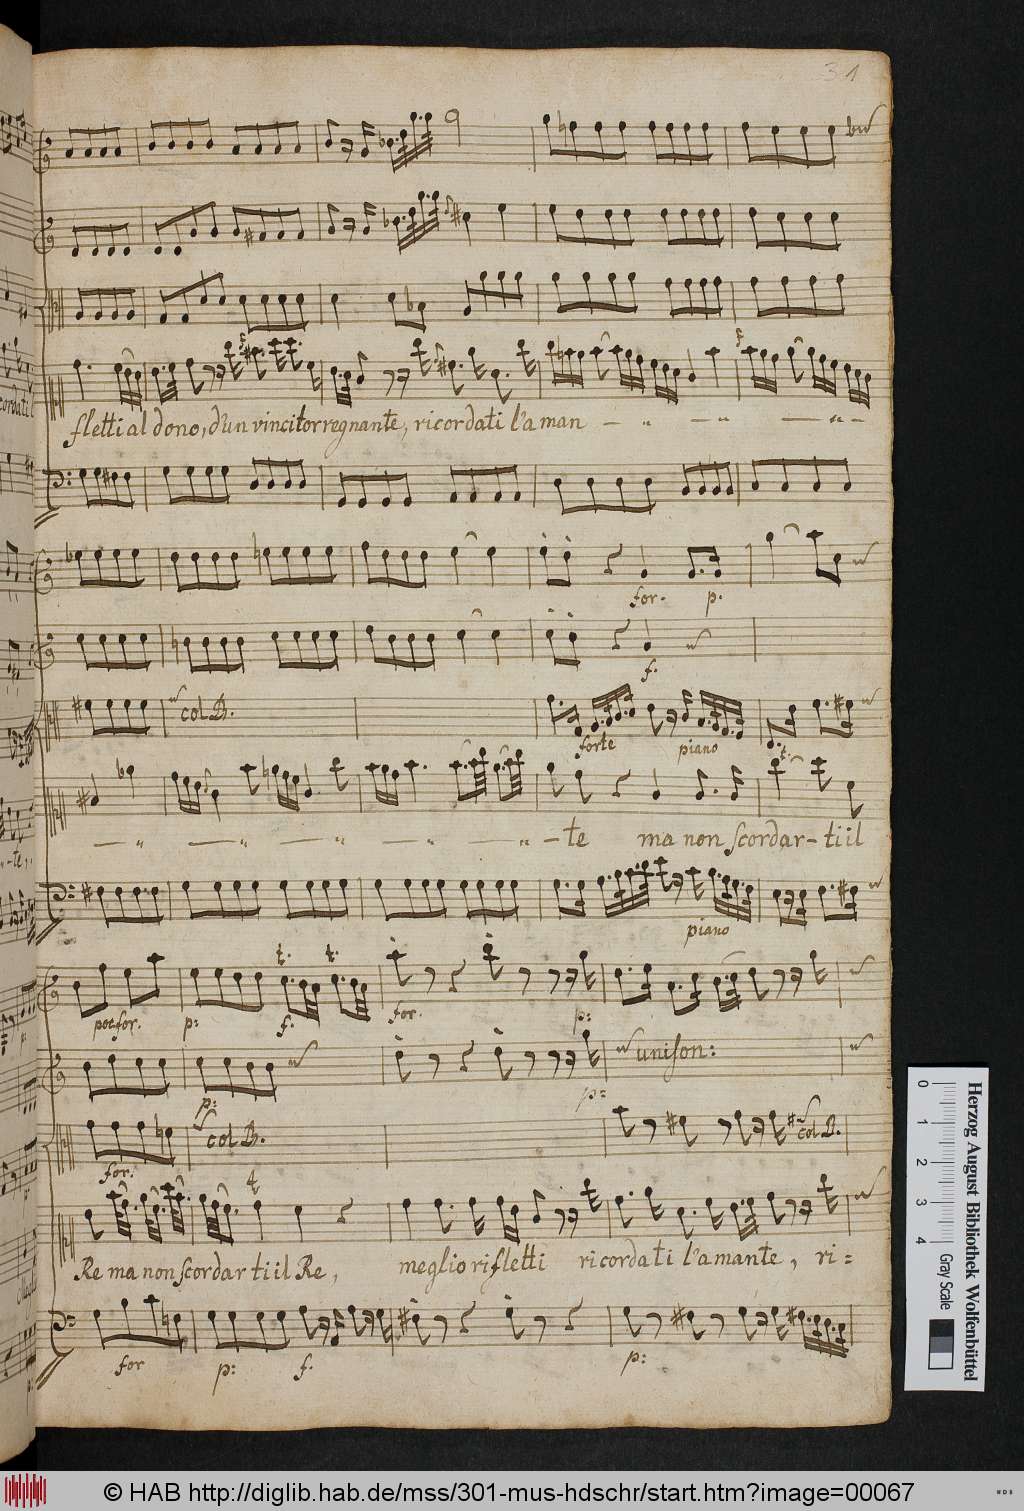 31
fletti al dono, d'un vincitor regnante, ricordati l'aman
for. p.
f.
col B.
forte piano t.
te ma non scordar-ti il
piano
t. t.
poc for. p: f. for. p:
p: p:
unison:
col B. col B.
for. t
Re ma non scordar ti il Re, meglio rifletti ricordati l'amante, ri=
for p: f. p:
0 1 2 3 4
Herzog August Bibliothek Wolfenbüttel
Gray Scale
© HAB http://diglib.hab.de/mss/301-mus-hdschr/start.htm?image=00067